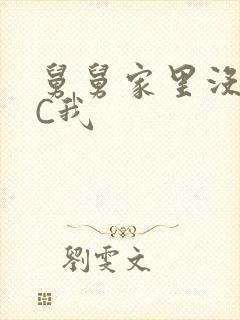 舅舅家里没
C我
劉雯文